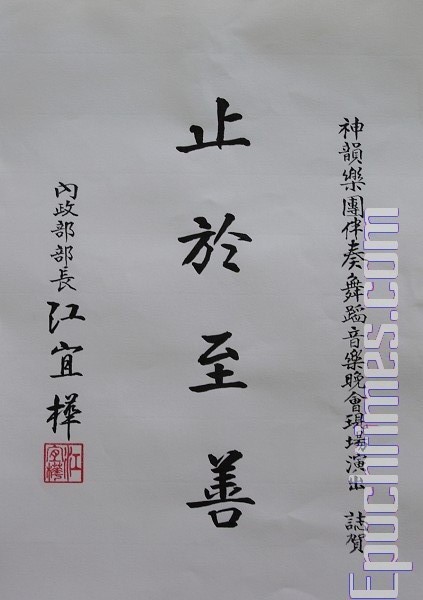 神韻樂團伴奏舞蹈音樂晚會現場演出 誌賀
止於至善
內政部部長 江宜樺
江宜樺
Epochtimes.com